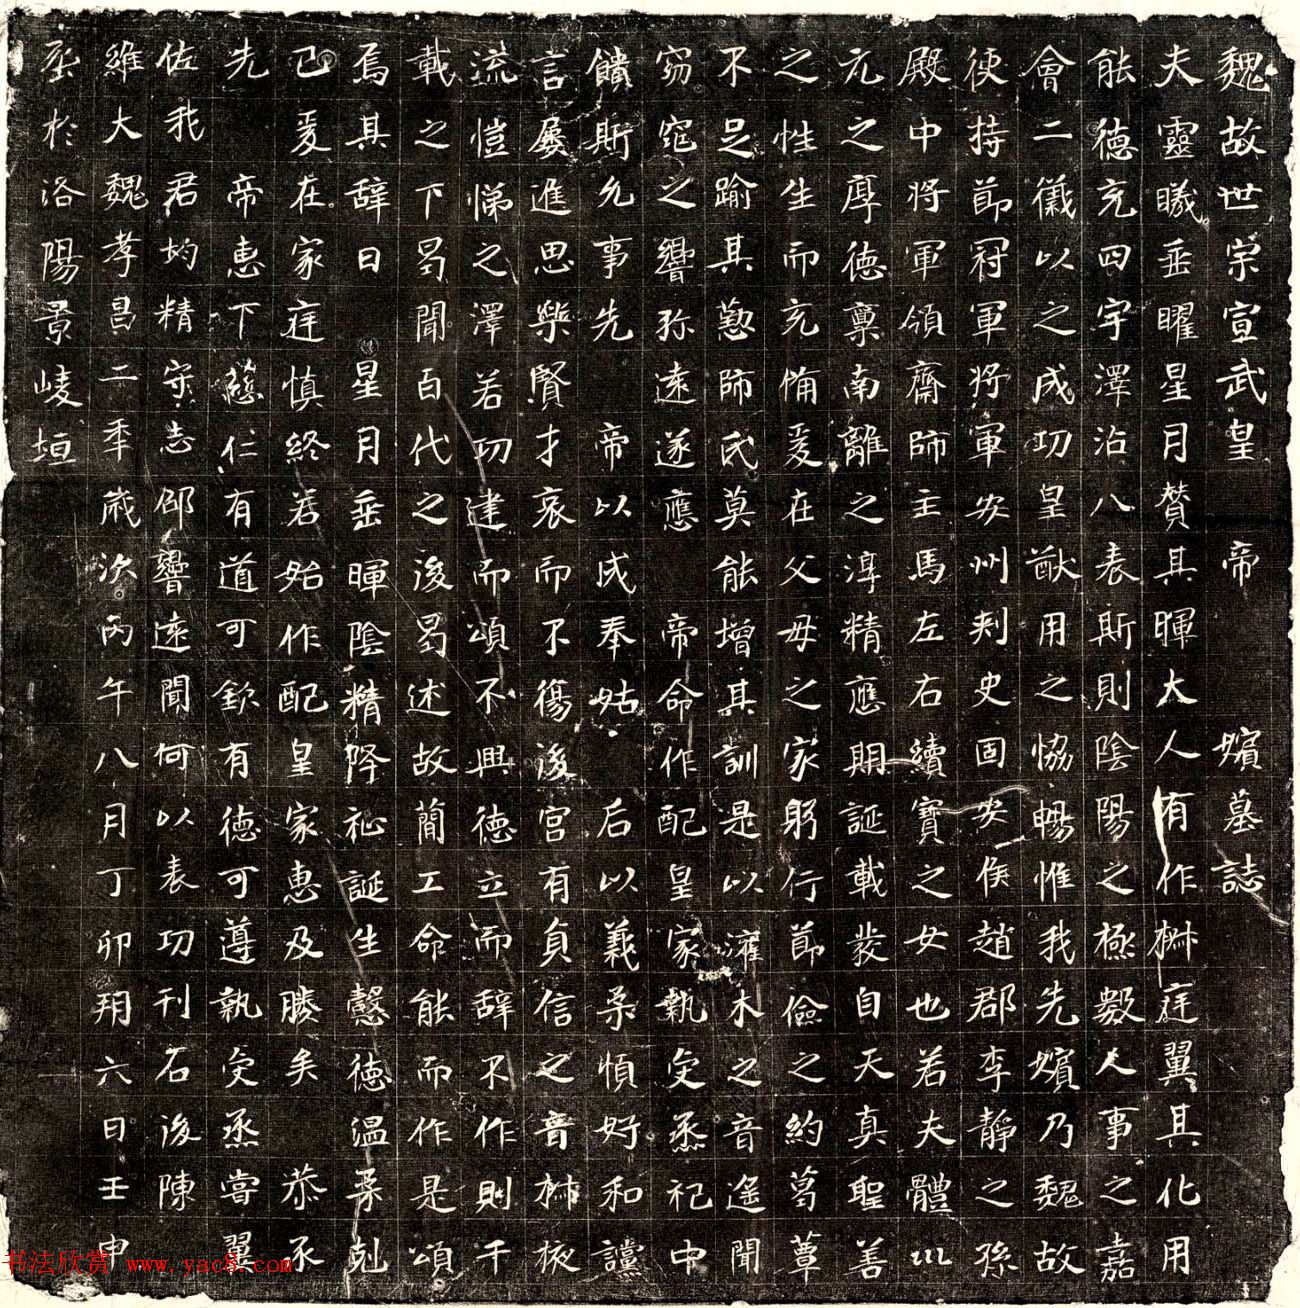 魏故世宗宣武皇帝嬪墓誌
夫靈曦垂曜星月贊其暉大人有作椒庭翼其化用
能德充四宇澤沾八表斯則陰陽之極數人事之嘉
會二儀以之成功皇猷用之恊暢惟我先嬪乃魏故
使持節冠軍將軍安州刾史固安侯趙郡李靜之孫
殿中將軍領齋師主馬左右續寶之女也若夫體㳂
元之厚德稟南離之淳精應期誕載發自天真聖善
之性生而充俻爰在父母之家躬行節儉之約葛蕈
不足踰其懃師氏莫能增其訓是以灌木之音遥聞
窈窕之響弥遠遂應帝命作配皇家執奠烝祀中
饋斯允事先帝以成奉姑后以義柔慎好和讜
言屢進思樂賢才哀而不傷後宮有貞信之音椒掖
流愷悌之澤若功建而頌不興德立而辞不作則千
載之下曷聞百代之後曷述故簡工命能而作是頌
焉其辞曰星月垂暉陰精降祉誕生慇德温柔剋
己爰在家庭慎終若始作配皇家惠及賸矣恭承
先帝惠下慈仁有道可欽有德可遵執奠烝嘗翼
佐我君灼精守志邵響遠聞何以表功刊石後陳
維大魏孝昌二秊歲次丙午八月丁卯朔六日壬申
塟於洛陽景崚垣
书法欣赏 www.yac8.com